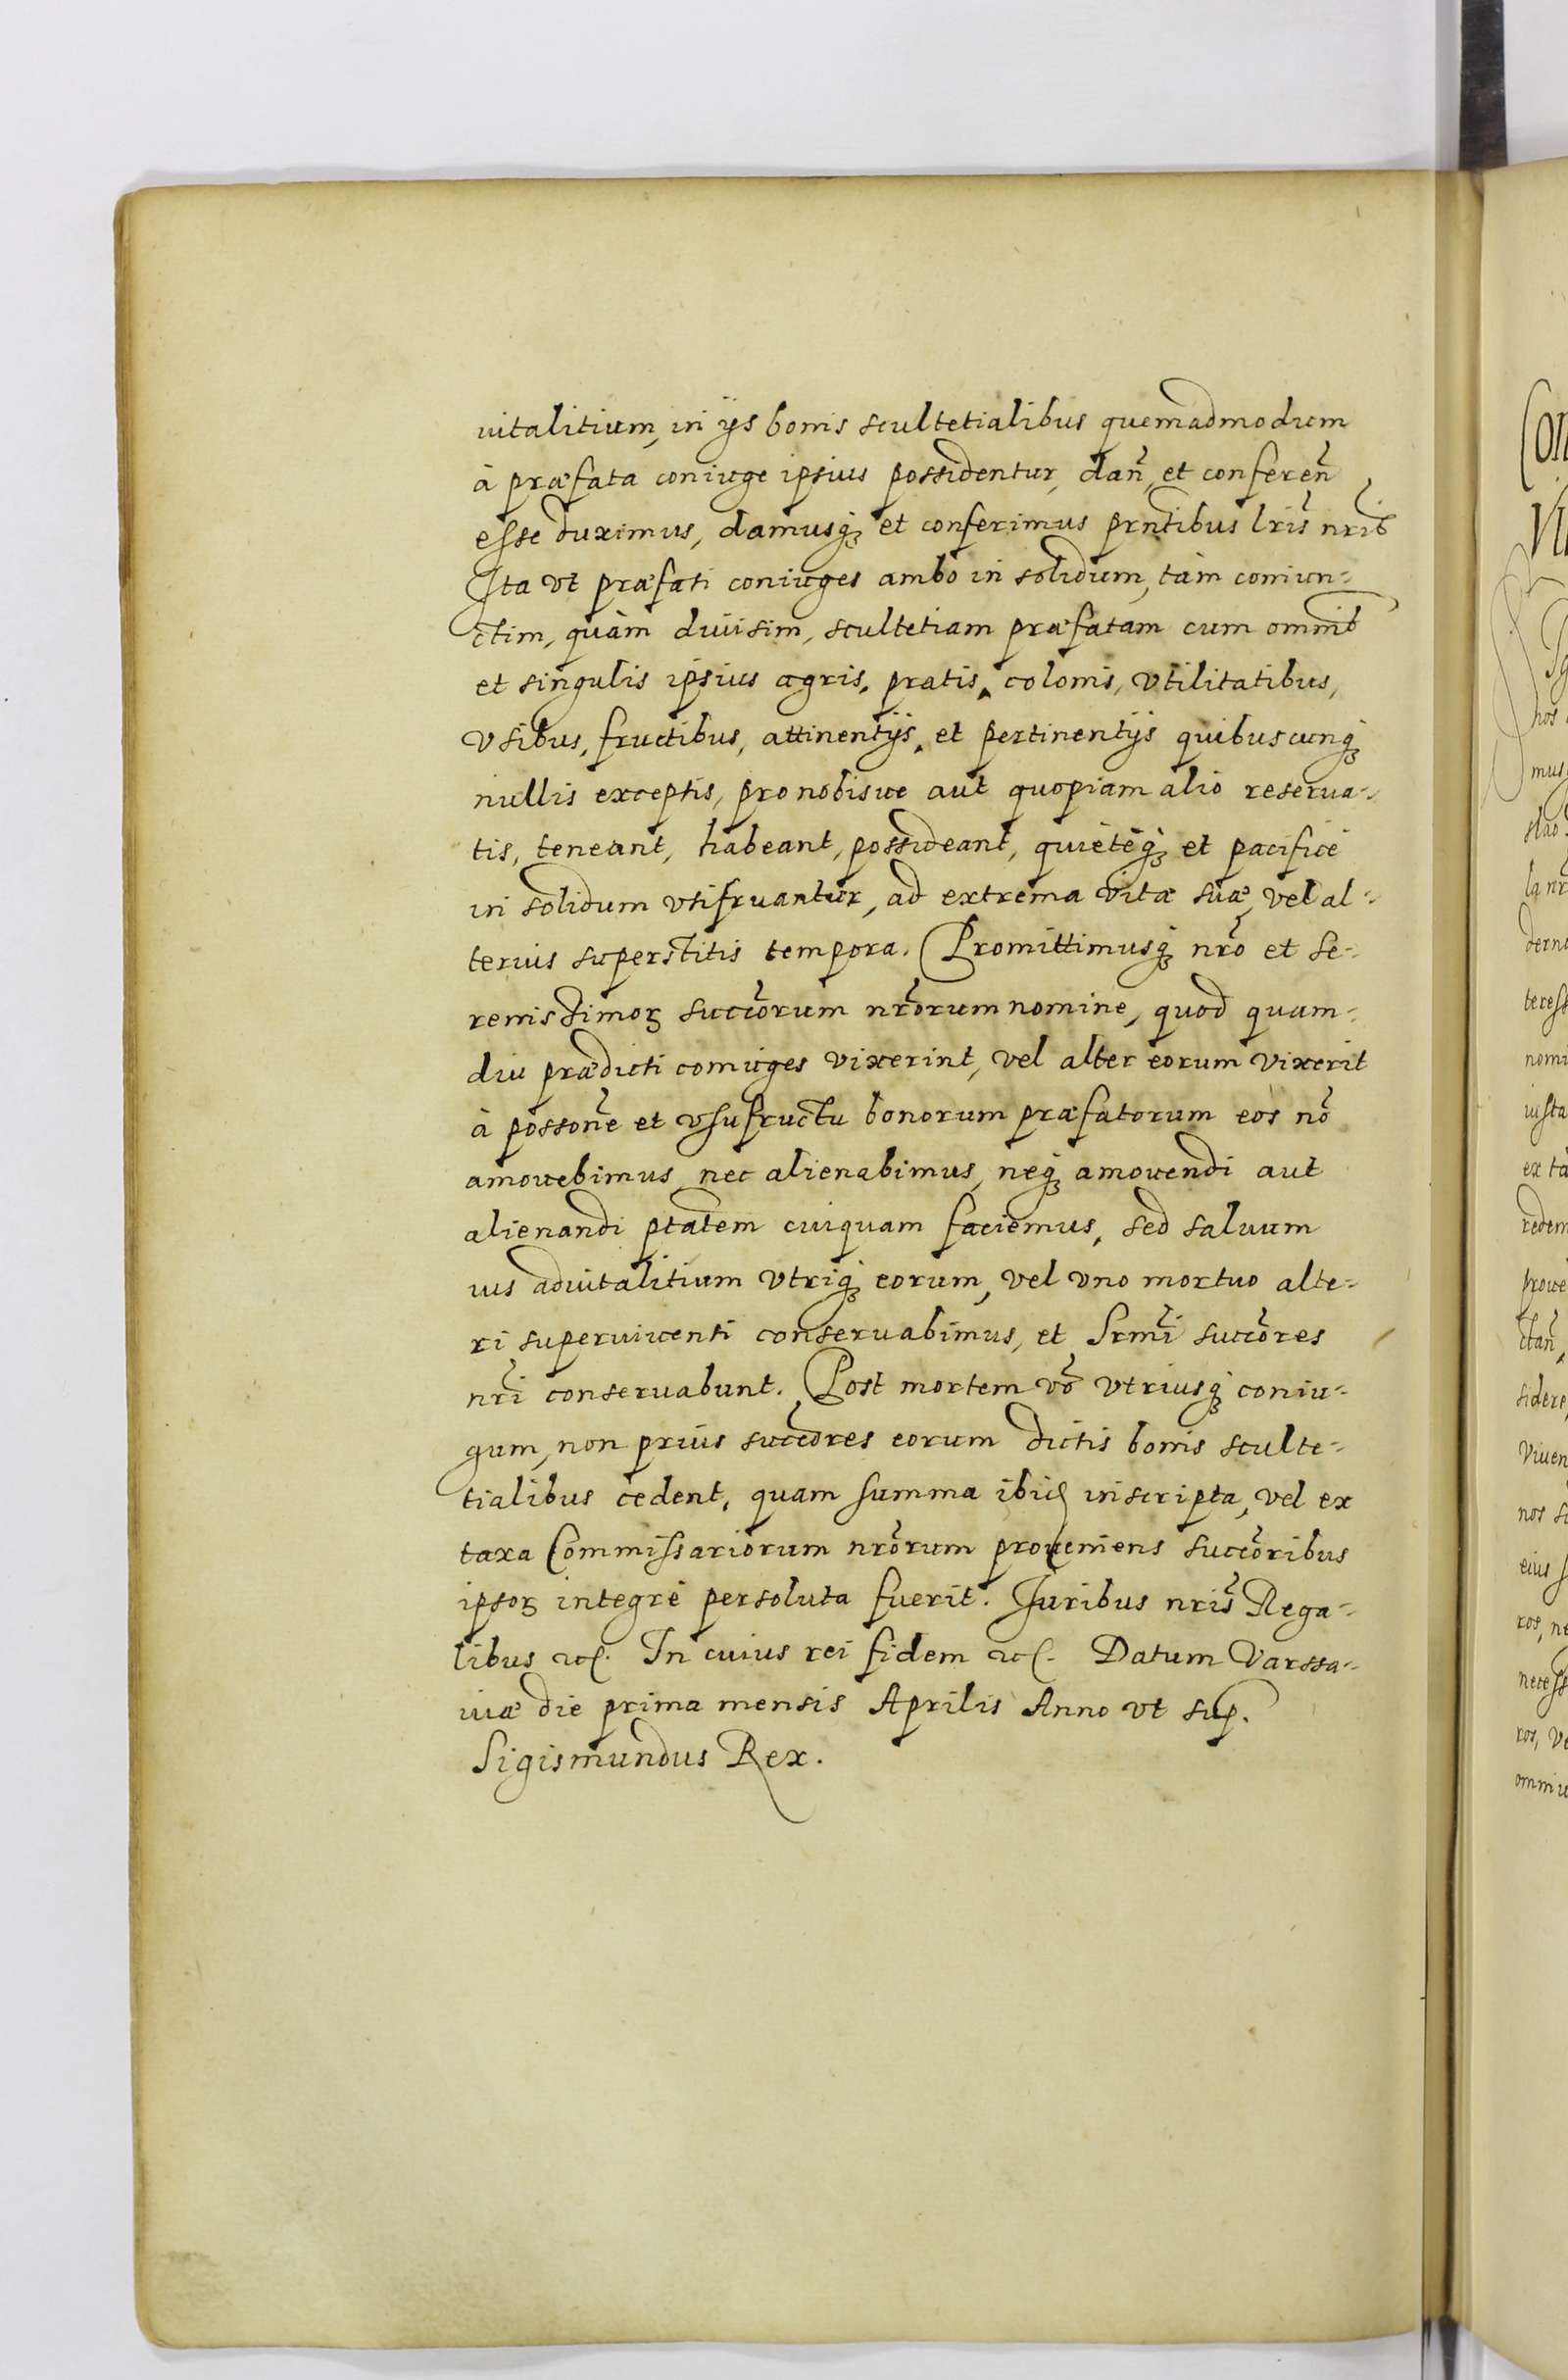 uitalitium, in ijs bonis scultetialibus quemadmodum
à præfata coniuge ipsius possidentur, dan̄, et conferen̄
esse duximus, damusq́ꝫ et conferimus prñtibus lris̃ nrib̃
Ita vt præfati coniuges ambo in solidum, tàm coniun-
ctim, quàm diuisim, scultetiam præfatam cum omnib
et singulis ipsius agris, pratis, colonis, vtilitatibus,
vsibus, fructibus, attinentijs, et pertinentijs quibuscunqꝫ
nullis exceptis, pro nobisue aut quopiam alio reserua-
tis, teneant, habeant, possideant, quietèqꝫ et pacificè
in solidum vtifruantur, ad extrema vitæ suæ, vel al-
terius superstitis tempora. Promittimusqꝫ nrõ et Se-
renissimoꝝ succõrum nrõrum nomine, quod quam-
diu prædicti coniuges vixerint, vel alter eorum vixerit
à possonẽ et vsufructu bonorum præfatorum eos nõ
amouebimus, nec alienabimus, neqꝫ amouendi aut
alienandi ptãtem cuiquam faciemus, sed saluum
ius aduitalitium vtriqꝫ eorum, vel vno mortuo alte-
ri superuiuenti conseruabimus, et Srmĩ succõres
nrĩ conseruabunt. Post mortem võ vtriusqꝫ coniu-
gum, non prius succõres eorum dictis bonis sculte-
tialibus cedent, quam summa ibid inscripta, vel ex
taxa Commissariorum nrõrum proueniens succõribus
ipsoꝝ integrè persoluta fuerit. Juribus nris̃ Rega-
libus etc. In cuius rei fidem etc. Datum Varssa-
uiæ die prima mensis Aprilis Anno vt sup.
Sigismundus Rex.